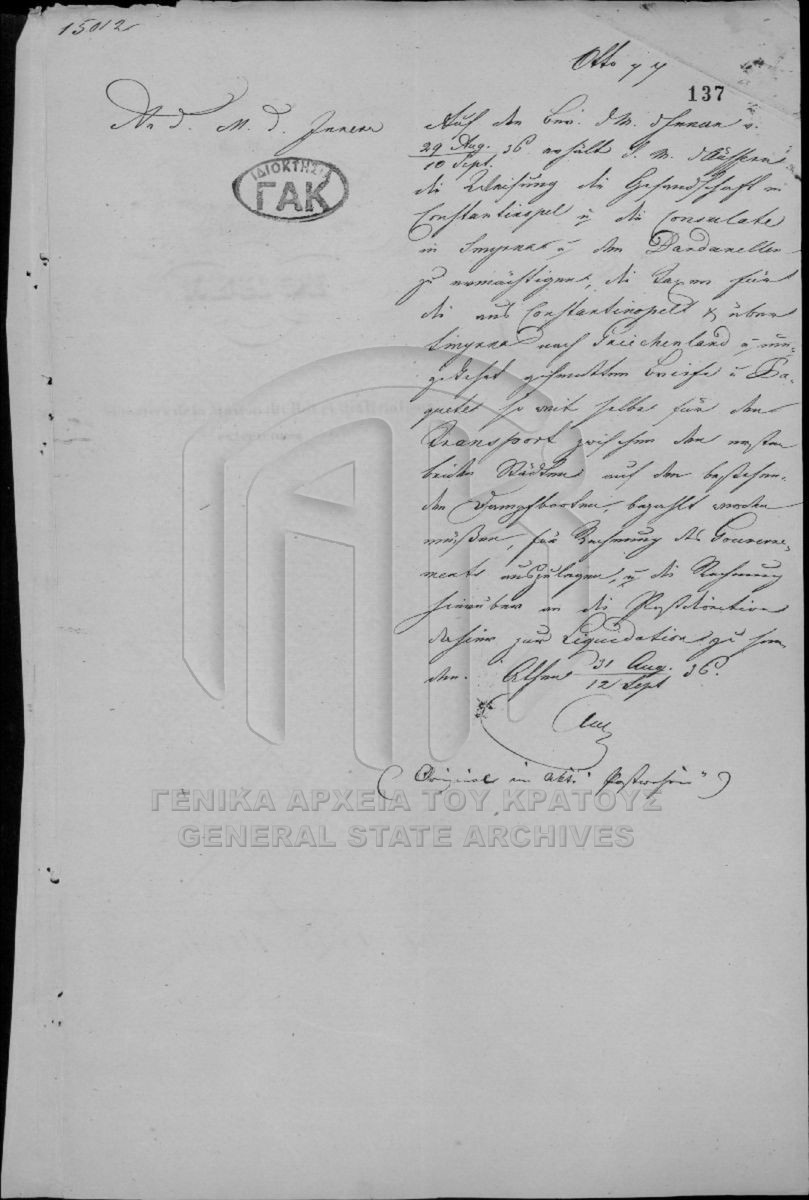 15012
Otto
137
An d. M. d. Innern
Auf den Ber. d M. d Innern v.
29 Aug. / 10 Sept. 36. erhält d. M. d Äussern
die Weisung die Gesandschaft in
Constantinopel u die Consulate
in Smyrna u den Dardanellen
zu ermächtigen, die Taxen für
die aus Constantinopel & über
Smyrna nach Griechenland u um-
gekehrt gesendeten Briefe u Pa-
quete so weit selbe für den
Transport zwischen den ersten
beiden Städten auf den bestehen-
den Dampfbooten bezahlt werden
müßen, für Rechnung des Gouverne-
ments auszulegen, u die Rechnung
hierüber an die Postdirection
dahier zur Liquidation zu sen-
den. Athen 31 Aug. / 12 Sept 36.
(Original in Akt: Postwesen")
ΙΔΙΟΚΤΗΣΙΑ
ΓΑΚ
ΓΕΝΙΚΑ ΑΡΧΕΙΑ ΤΟΥ ΚΡΑΤΟΥΣ
GENERAL STATE ARCHIVES